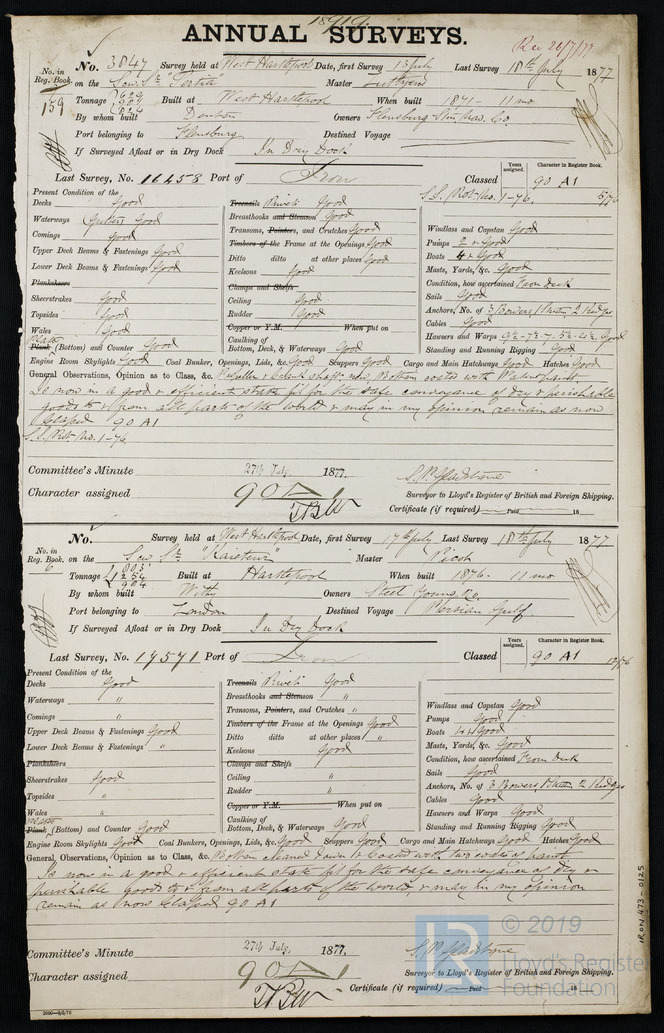 18919.
ANNUAL SURVEYS.
Rec 20/7/77
No. in Reg. Book.
159
No. 3847 Survey held at West Hartlepool Date, first Survey 13 July Last Survey 18th July 1877
on the Scw Sr "Tertia" Master
Tonnage Built at West Hartlepool When built 1871 - 11 mo
By whom built Denton Owners Flensburg Stm Nav. Co.
Port belonging to Flensburg Destined Voyage
If Surveyed Afloat or in Dry Dock In Dry Dock
Last Survey, No. 16258 Port of Iron Classed 90 A1
Years assigned. Character in Register Book.
S.S. No. 1-76.
Present Condition of the
Decks Good
Waterways Gutters Good
Comings Good
Upper Deck Beams & Fastenings Good
Lower Deck Beams & Fastenings Good
Planksheers
Sheerstrakes Good
Topsides Good
Wales Good
Plank (Bottom) and Counter Good
Treenails Rivets Good
Breasthooks and Stemson Good
Transoms, Pointers, and Crutches Good
Timbers of the Frame at the Openings Good
Ditto ditto at other places Good
Keelsons Good
Clamps and Shelfs
Ceiling Good
Rudder Good
Copper or Y.M. When put on
Caulking of Bottom, Deck, & Waterways Good
Windlass and Capstan Good
Pumps 2 + Good
Boats 4 Good
Masts, Yards, &c. Good
Condition, how ascertained From Deck
Sails Good
Anchors, No. of 3 Bowers 1 Stream 2 Kedges
Cables Good
Hawsers and Warps Good
Standing and Running Rigging Good
Engine Room Skylights Good Coal Bunker, Openings, Lids, &c. Good Scuppers Good Cargo and Main Hatchways Good Hatches Good
General Observations, Opinion as to Class, &c. Bottom coated with paint
Is now in a good & efficient state fit for the safe conveyance of dry & perishable
goods to & from all parts of the world & may in my opinion remain as now
Classed 90 A1
S.S. No. 1-76
Committee's Minute 27th July, 1877.
Character assigned 90 A 1
S. P. Gladstone
Surveyor to Lloyd's Register of British and Foreign Shipping.
Certificate (if required) Paid 18
No. in Reg. Book.
6
No. Survey held at West Hartlepool Date, first Survey 17th July Last Survey 18th July 1877
on the Scw Sr "Kaisteur" Master
Tonnage 1254 Built at Hartlepool When built 1876. 11 mo
By whom built Withy Owners Steel Young & Co.
Port belonging to London Destined Voyage Persian Gulf
If Surveyed Afloat or in Dry Dock In Dry Dock
Last Survey, No. 17571 Port of Iron Classed 90 A1
Years assigned. Character in Register Book.
12/76
Present Condition of the
Decks Good
Waterways "
Comings "
Upper Deck Beams & Fastenings Good
Lower Deck Beams & Fastenings "
Planksheers
Sheerstrakes Good
Topsides "
Wales "
Plank (Bottom) and Counter Good
Treenails Rivets Good
Breasthooks and Stemson "
Transoms, Pointers, and Crutches "
Timbers of the Frame at the Openings Good
Ditto ditto at other places "
Keelsons Good
Clamps and Shelfs
Ceiling "
Rudder "
Copper or Y.M. When put on
Caulking of Bottom, Deck, & Waterways Good
Windlass and Capstan Good
Pumps Good
Boats 4 Good
Masts, Yards, &c. Good
Condition, how ascertained From Deck
Sails Good
Anchors, No. of 3 Bowers 1 Stream 2 Kedges
Cables Good
Hawsers and Warps Good
Standing and Running Rigging Good
Engine Room Skylights Good Coal Bunkers, Openings, Lids, &c. Good Scuppers Good Cargo and Main Hatchways Good Hatches Good
General, Observations, Opinion as to Class, &c. Bottom cleaned down & coated with two coats of paint
Is now in a good & efficient state fit for the safe conveyance of dry &
perishable goods to & from all parts of the world, & may in my opinion
remain as now Classed 90 A1
Committee's Minute 27th July, 1877.
Character assigned 90 A 1
S. P. Gladstone
Surveyor to Lloyd's Register of British and Foreign Shipping.
Certificate (if required) Paid 18
IRON 473-0125
LR
© 2019
Lloyd's Register
Foundation